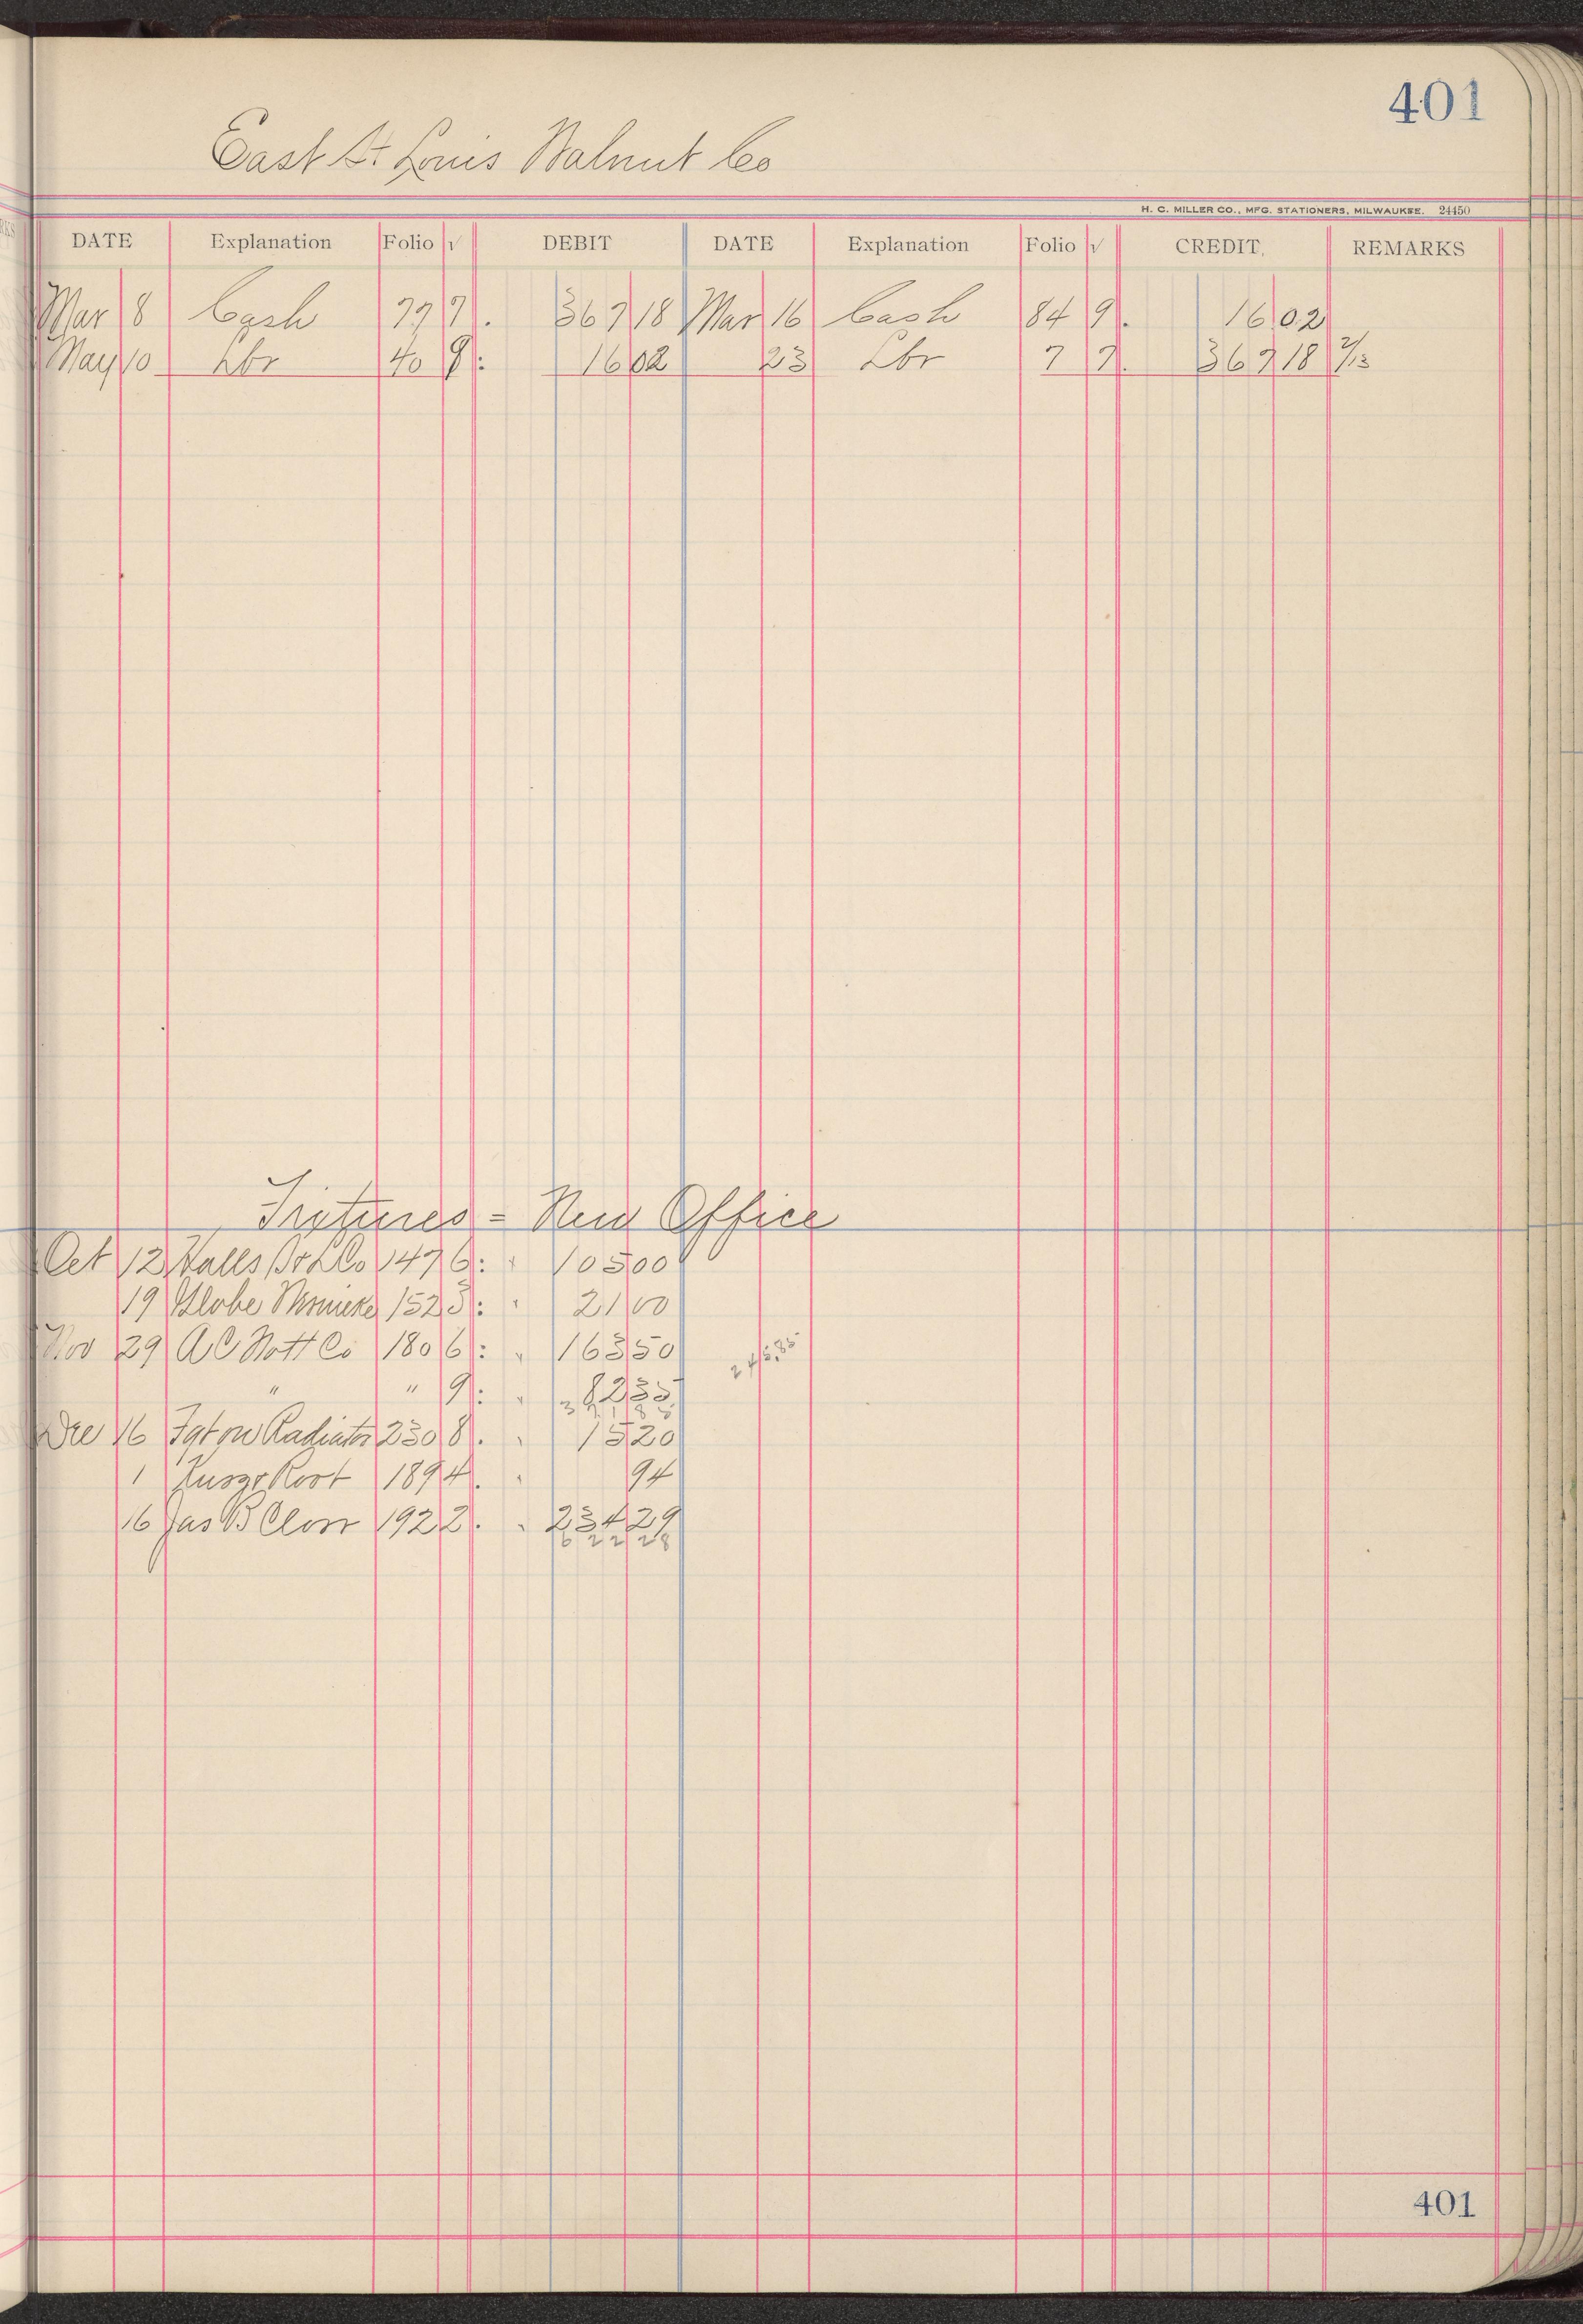 401
East St Louis Walnut Co
H. C. MILLER CO., MFG. STATIONERS, MILWAUKEE. 24450
DATE Explanation Folio √ DEBIT DATE Explanation Folio √ CREDIT. REMARKS
Mar 8 Cash 797. 367 18 Mar 16 Cash 849. 16 02
May 10 Lbr 408: 16 02 23 Lbr 77. 367 18 2/13
Fixtures = New Office
Oct 12 Halls 1476: " 105 00
19 Globe Wernicke 1525: " 21 00
Nov 29 A C Nott Co 1806: " 163 50
" " 9: " 82 35
Dec 16 Fgt on Radiator 2308. " 15 20
1 Root 1894. " 94
16 Jas B Clow 1922. " 234 29
622 28
401